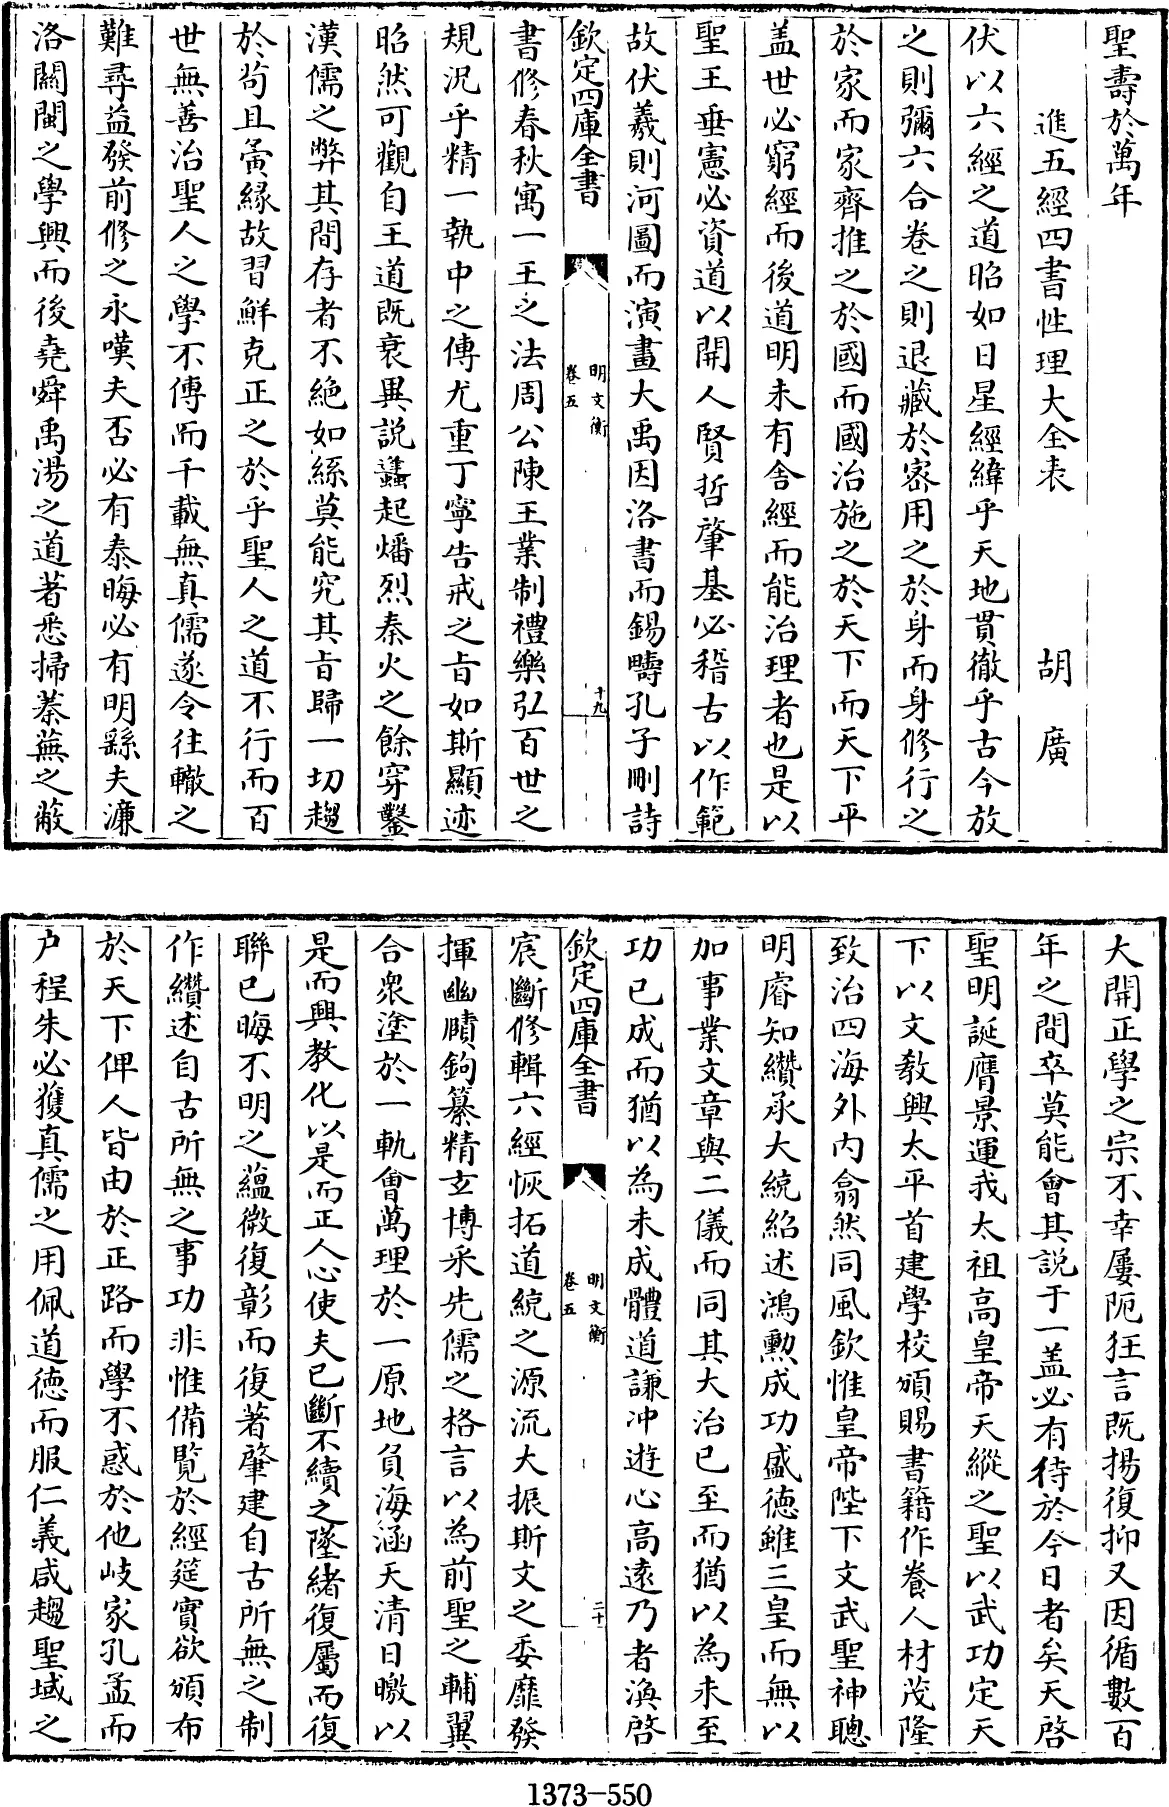 聖壽於萬年
進五經四書性理大全表 胡廣
伏以六經之道昭如日星經緯乎天地貫徹乎古今放
之則彌六合卷之則退藏於宻用之於身而身修行之
於家而家齊推之於國而國治施之於天下而天下平
盖世必窮經而後道明未有舎經而能治理者也是以
聖王垂憲必資道以開人賢哲肇基必稽古以作範
故伏羲則河圖而演畫大禹因洛書而錫疇孔子刪詩
欽定四庫全書 明文衡 卷五 十九
書修春秋寓一王之法周公陳王業制禮樂弘百世之
規況乎精一執中之傳尤重丁寧告戒之旨如斯顯迹
昭然可觀自王道既衰異説蠭起燔烈秦火之餘穿鑿
漢儒之弊其間存者不絶如絲莫能究其旨歸一切趨
於苟且夤緣故習鮮克正之於乎聖人之道不行而百
世無善治聖人之學不傳而千載無真儒遂令往轍之
難尋益發前修之永嘆夫否必有泰晦必有明繇夫濂
洛關閩之學興而後堯舜禹湯之道著悉掃蓁蕪之蔽
大開正學之宗不幸屢阨狂言既揚復抑又因循數百
年之間卒莫能會其説于一盖必有待於今日者矣天啓
聖明誕膺景運我太祖髙皇帝天縱之聖以武功定天
下以文敎興太平首建學校頒賜書籍作養人材茂隆
致治四海外内翕然同風欽惟皇帝陛下文武聖神聰
明睿知纘承大統紹述鴻勲成功盛徳雖三皇而無以
加事業文章與二儀而同其大治已至而猶以為未至
功已成而猶以為未成體道謙冲遊心高逺乃者渙啓
欽定四庫全書 明文衡 卷五 二十
宸斷修輯六經恢拓道統之源流大振斯文之委靡發
揮幽賾鉤纂精玄博采先儒之格言以為前聖之輔翼
合衆塗於一軌㑹萬理於一原地負海涵天清日皦以
是而興教化以是而正人心使夫已斷不續之墜緒復屬而復
聯已晦不明之藴微復彰而復著肇建自古所無之制
作纘述自古所無之事功非惟備覧於經筵實欲頒布
於天下俾人皆由於正路而學不惑於他岐家孔孟而
户程朱必獲真儒之用佩道徳而服仁義咸趨聖域之
1373-550